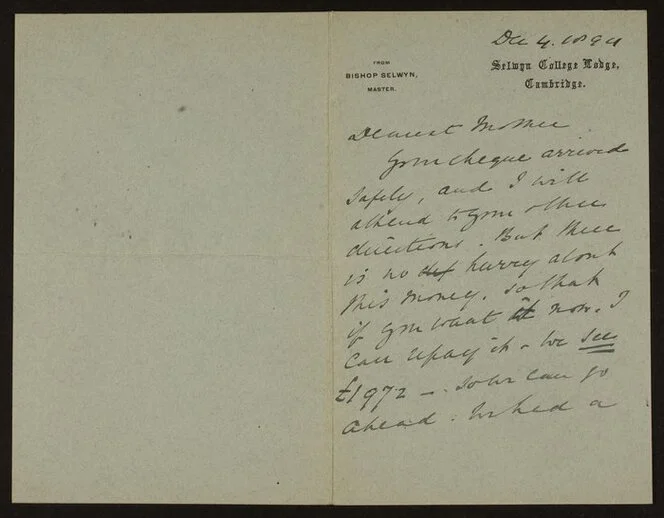 Dec 4. 1894
FROM
BISHOP SELWYN,
MASTER.
Selwyn College Lodge,
Cambridge.
Dearest Mother
Your cheque arrived
safely, and I will
attend to your other
directions. But there
is no hurry about
this money. so that
if you want it now. I
can repay it. We see
£1972 — . so we can go
ahead. We had a